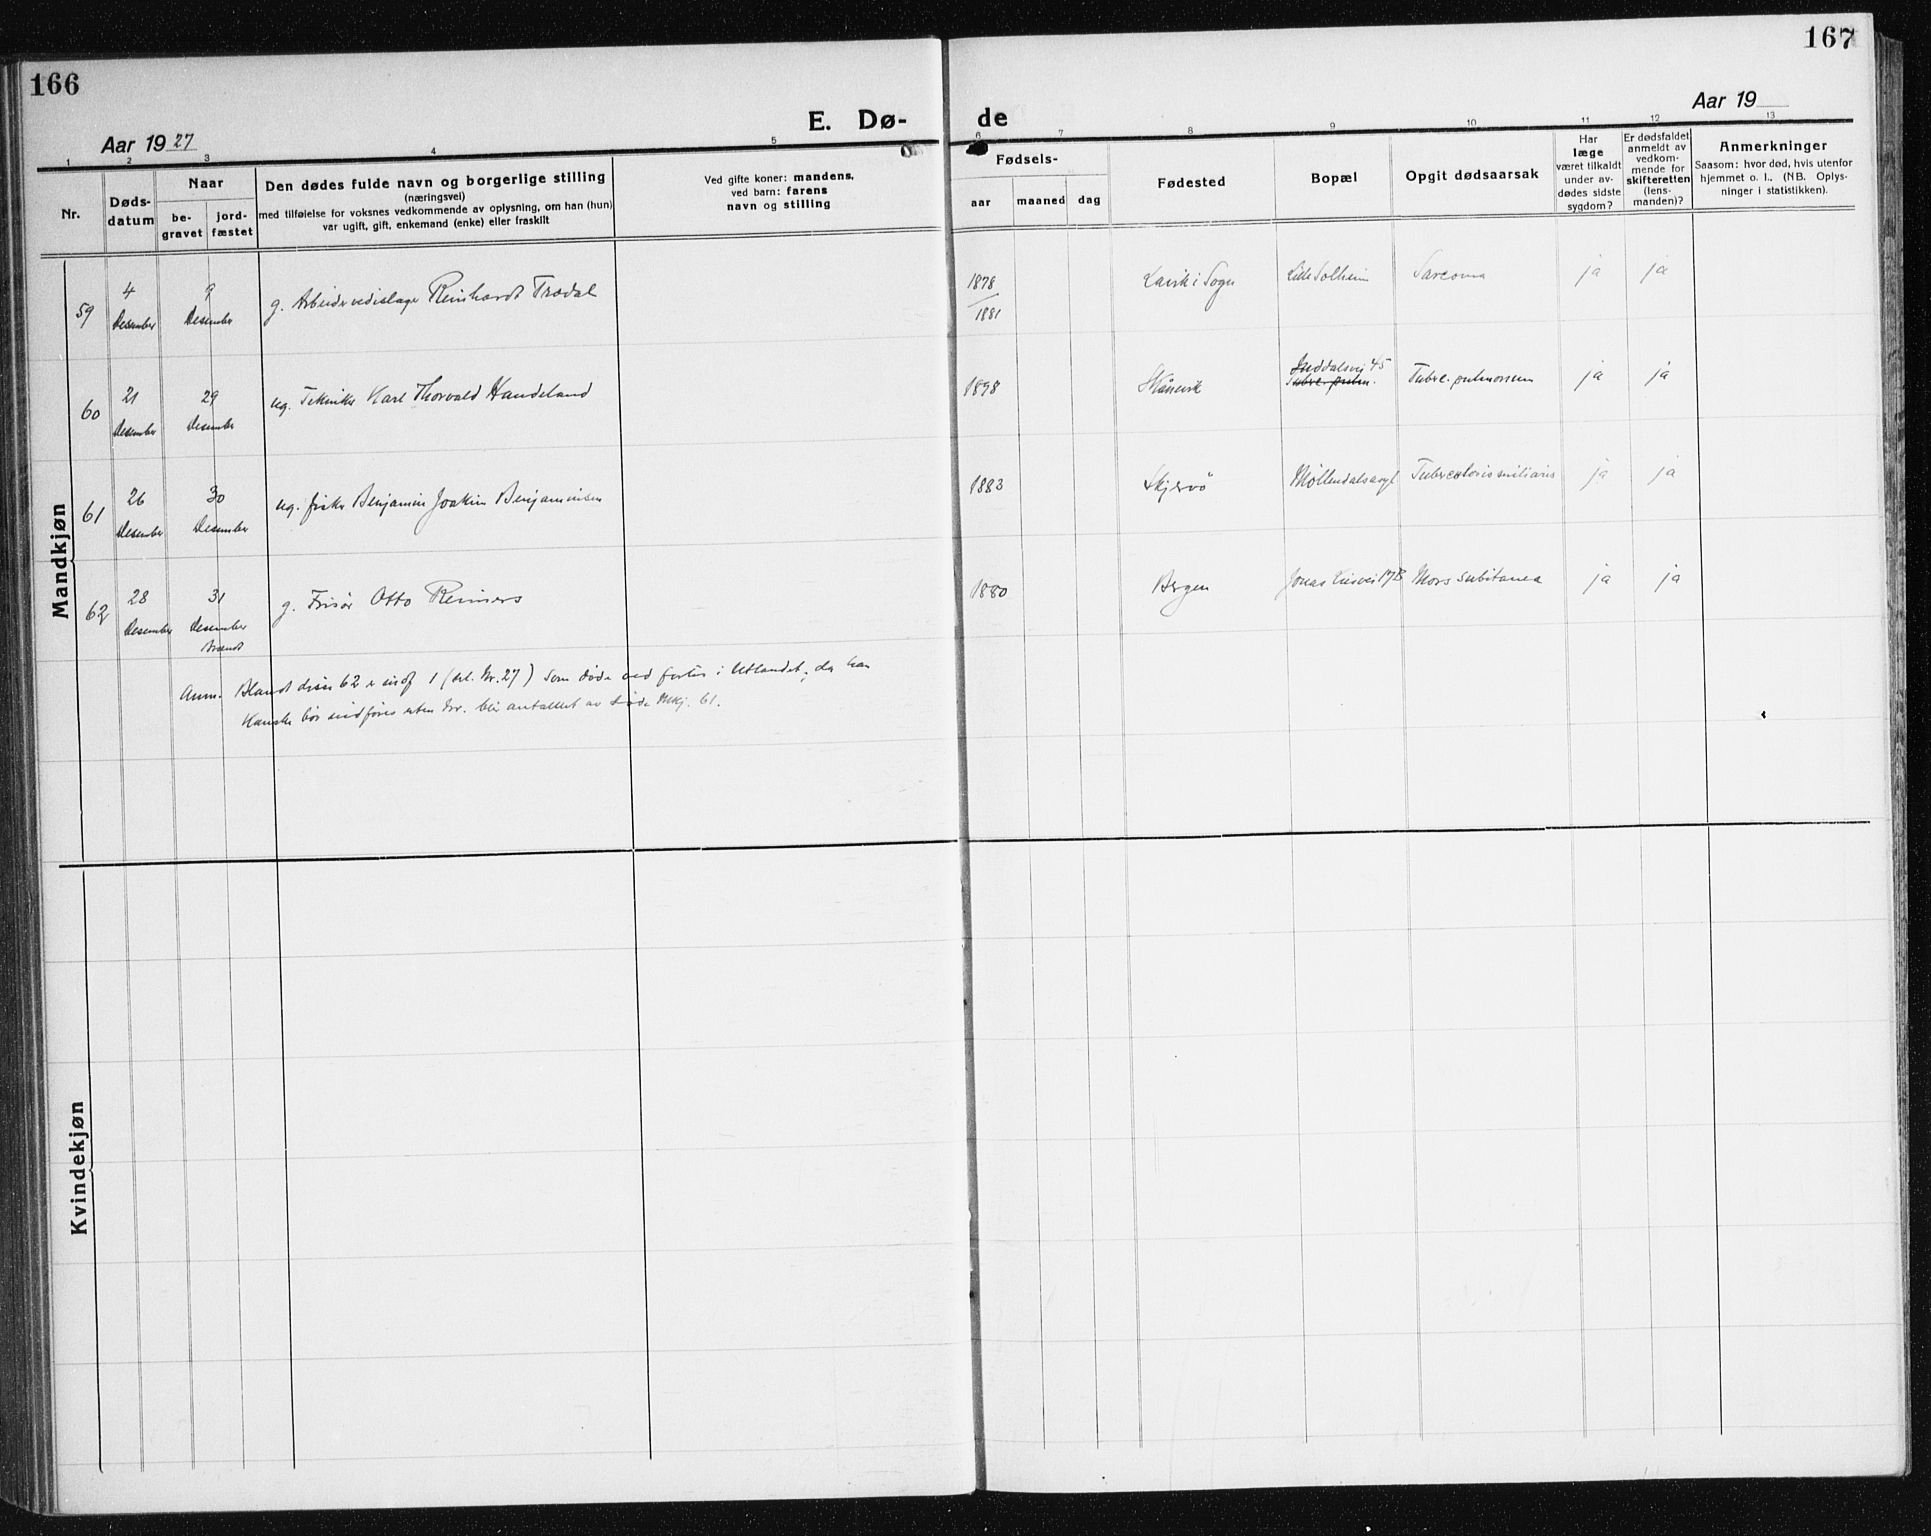 166
167
E. Dø-
de
Aar 1927
Aar 19
1 2 3 4 5 6 7 8 9 10 11 12 13
Nr.
Døds-
datum
Naar
be-
gravet
jord-
fæstet
Den dødes fulde navn og borgerlige stilling
(næringsvei)
med tilføielse for voksnes vedkommende av oplysning, om han (hun)
var ugift, gift, enkemand (enke) eller fraskilt
Ved gifte koner: mandens,
ved barn: farens
navn og stilling
Fødsels-
aar maaned dag
Fødested
Bopæl
Opgit dødsaarsak
Har
læge
været tilkaldt
under av-
dødes sidste
sygdom?
Er dødsfaldet
anmeldt av
vedkom-
mende for
skifteretten
(lens-
manden)?
Anmerkninger
Saasom: hvor død, hvis utenfor
hjemmet o. l.. (NB. Oplys-
ninger i statistikken).
Mandkjøn
59 4 Desember 9 Desember g. Reinhardt Trædal 1878/1881 Lavik i Sogn Lille Solheim Sarcoma ja ja
60 21 Desember 29 Desember ug. Tekniker Karl Thorvald Handeland 1898 Skånevik 45 Tubrc. pulm. Tubrc. pulmonum ja ja
61 26 Desember 30 Desember ug. fisker Benjamin Joakim Benjaminsen 1883 Skjervö Møllendalsasyl Tuberculosis miliaris ja ja
62 28 Desember 31 Desember Brændt g. Frisør Otto Reimers 1880 Bergen Jonas Liesvei 17B Mors subitanea ja ja
Anm. Blandt disse 62 er 1 (Nr. 27) som døde ved forlis i Utlandet; da han
Kanske bör indföres uten Nr. blir antallet av døde Mkj. 61.
Kvindekjøn